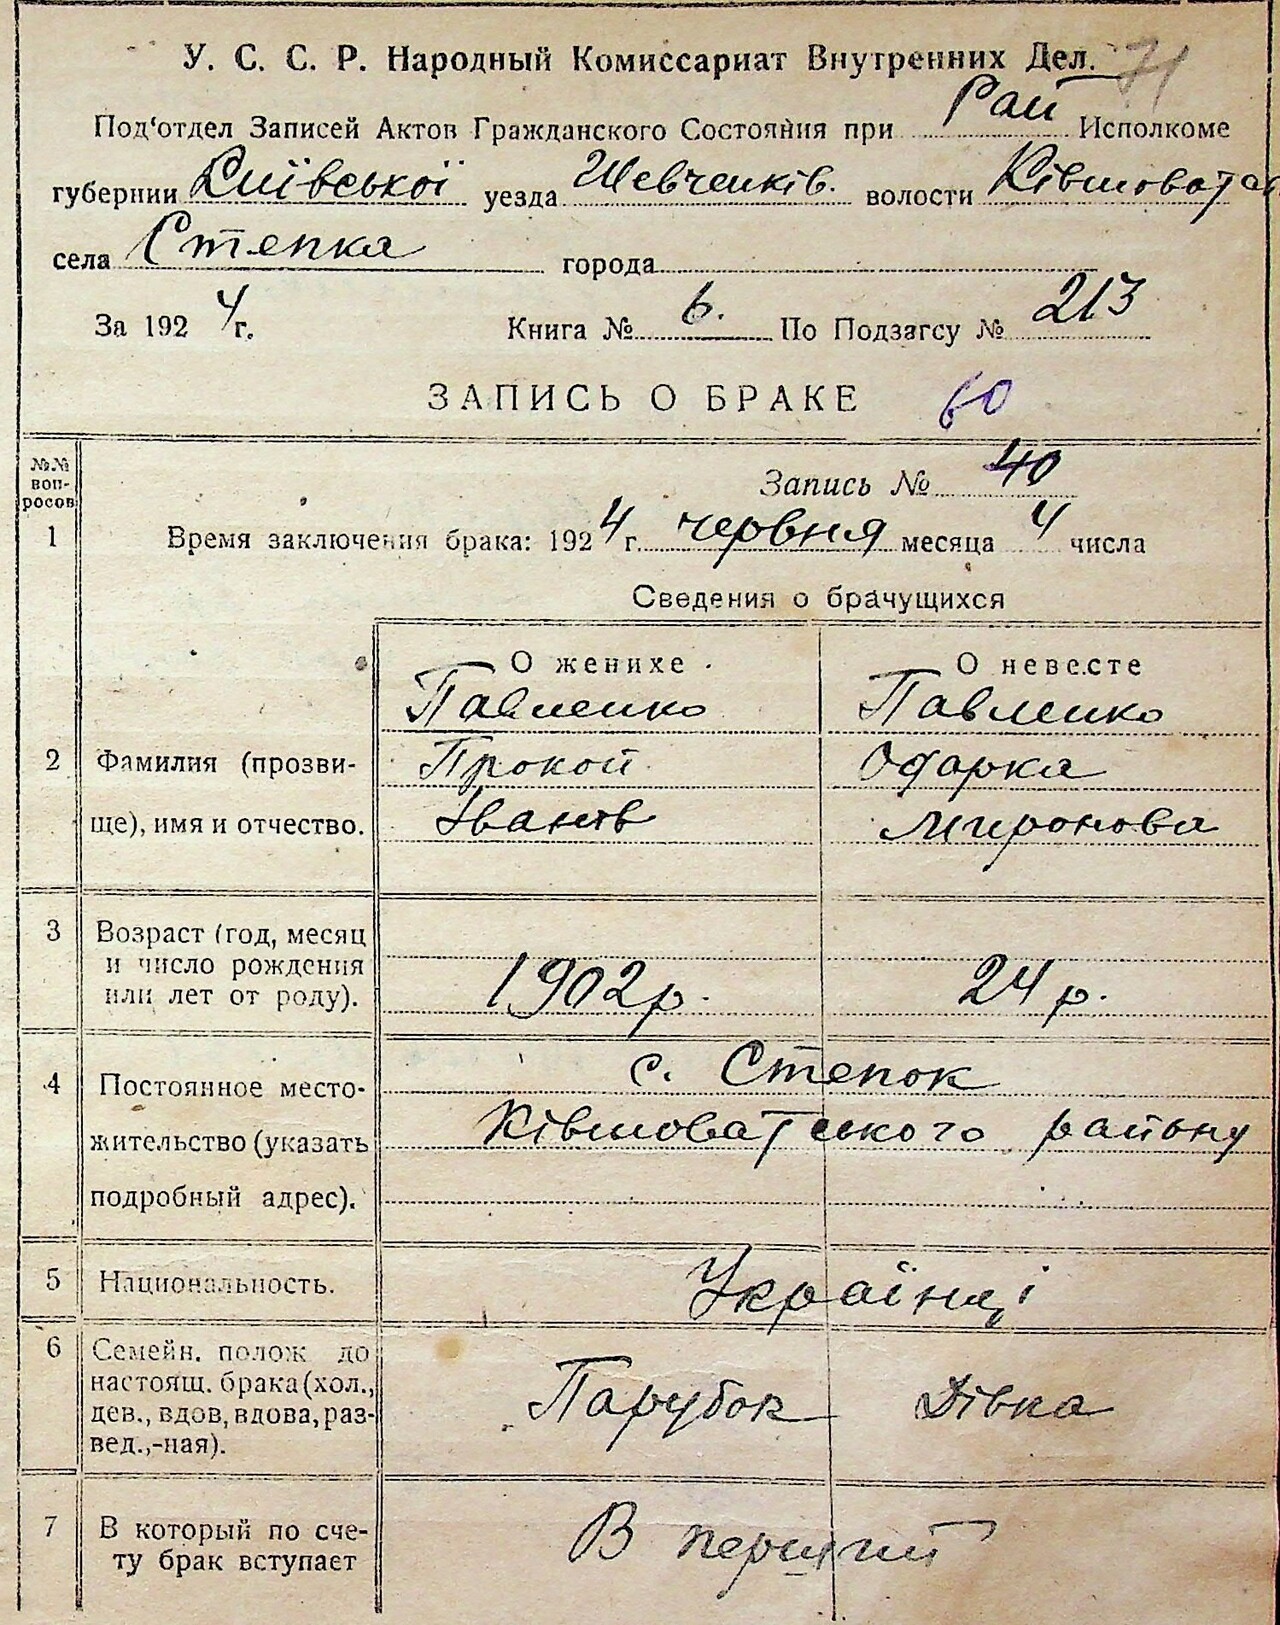 У. С. С. Р. Народный Комиссариат Внутренних Дел. 71
Под'отдел Записей Актов Гражданского Состояния при Рай Исполкоме
губернии Київської уезда Шевченків. волости Ківшоватсь
села Степка города
За 1924 г. Книга № 6. По Подзагсу № 213
ЗАПИСЬ О БРАКЕ 60
№№ вопросов
Запись № 40
1 Время заключения брака: 1924 г. червня месяца 4 числа
Сведения о брачущихся
О женихе О невесте
Павленко Павленко
2 Фамилия (прозви- Прокоп Одарка
ще), имя и отчество. Іванів Миронова
3 Возраст (год, месяц
и число рождения
или лет от роду). 1902 р. 24 р.
с. Степок
4 Постоянное место-
жительство (указать Ківшоватського району
подробный адрес).
5 Национальность. Українці
6 Семейн. полож до
настоящ. брака (хол.,
дев., вдов, вдова, раз- Парубок Дівка
вед.,-ная).
7 В который по сче- В перший
ту брак вступает